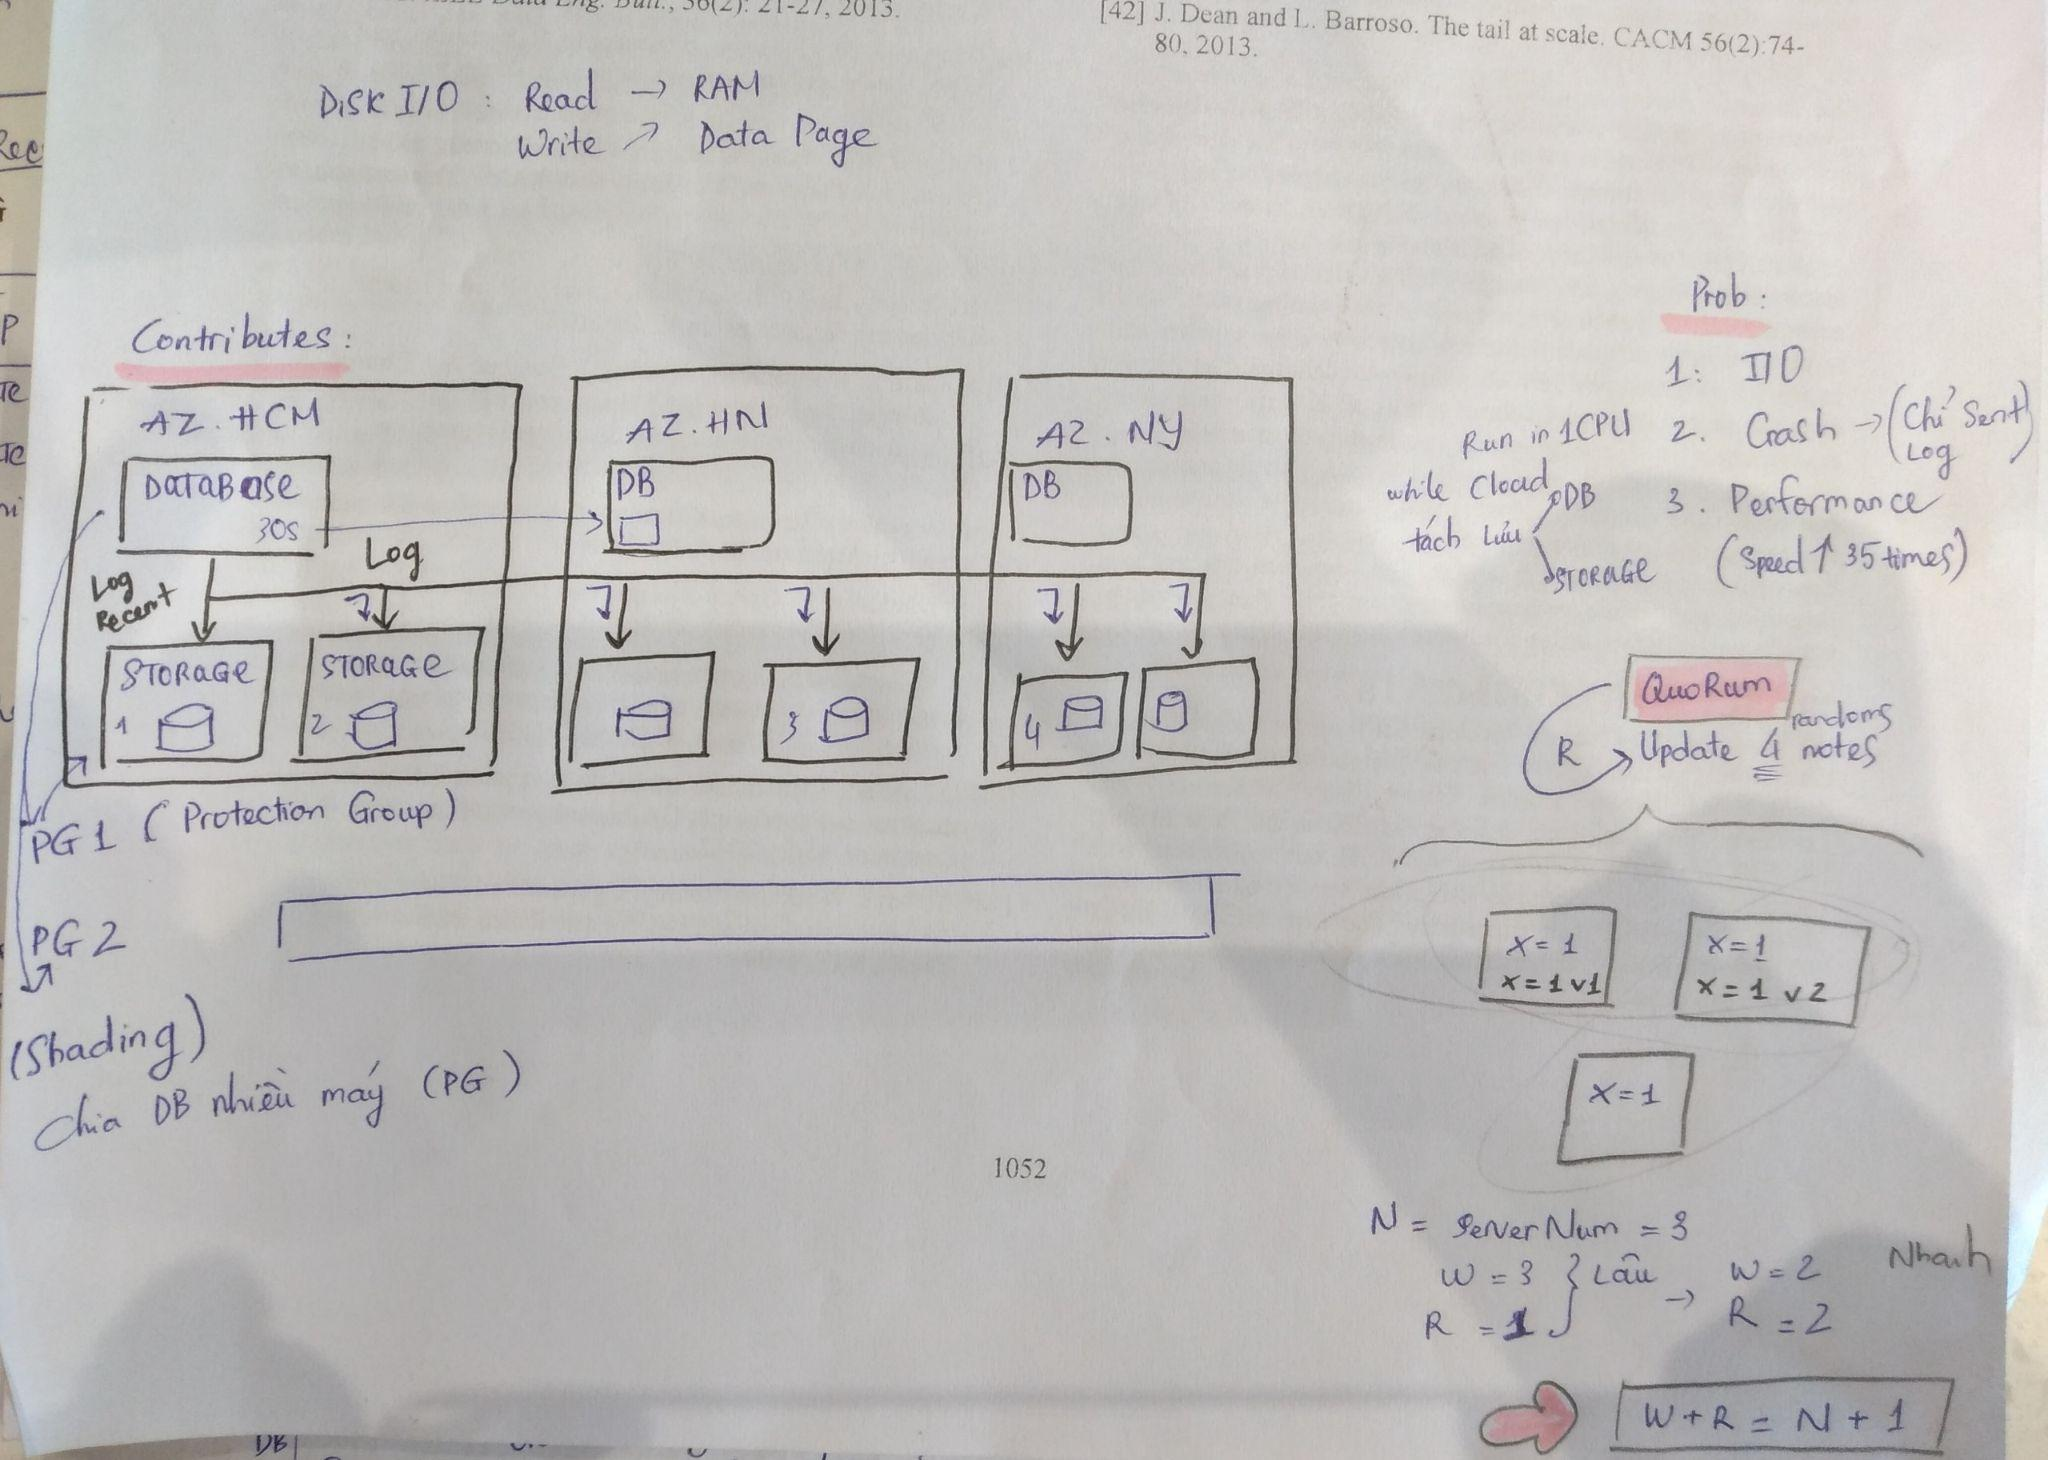 Data Eng. Bull., 36(2): 21-27, 2013.
[42] J. Dean and L. Barroso. The tail at scale. CACM 56(2):74-
80, 2013.
DISK I/O : Read → RAM
Write ↗ Data Page
Contributes :
AZ.HCM
DATABASE
30s
Log
Log
Recent
STORAGE
1
STORAGE
2
AZ.HN
DB
3
AZ.NY
DB
4
PG 1 (Protection Group)
PG 2
(Shading)
Chia DB nhiều máy (PG)
Prob :
1: I/O
2. Crash → (Chỉ Sent
Log)
3. Performance
(Speed ↑ 35 times)
Run in 1CPU
while Cloud
tách lưu
DB
STORAGE
QuoRum
R
randoms
Update 4 notes
X = 1
X = 1 v1
X = 1
X = 1 v2
X = 1
1052
N = ServerNum = 3
W = 3 } Lâu → W = 2 Nhanh
R = 1 R = 2
W + R = N + 1
DB